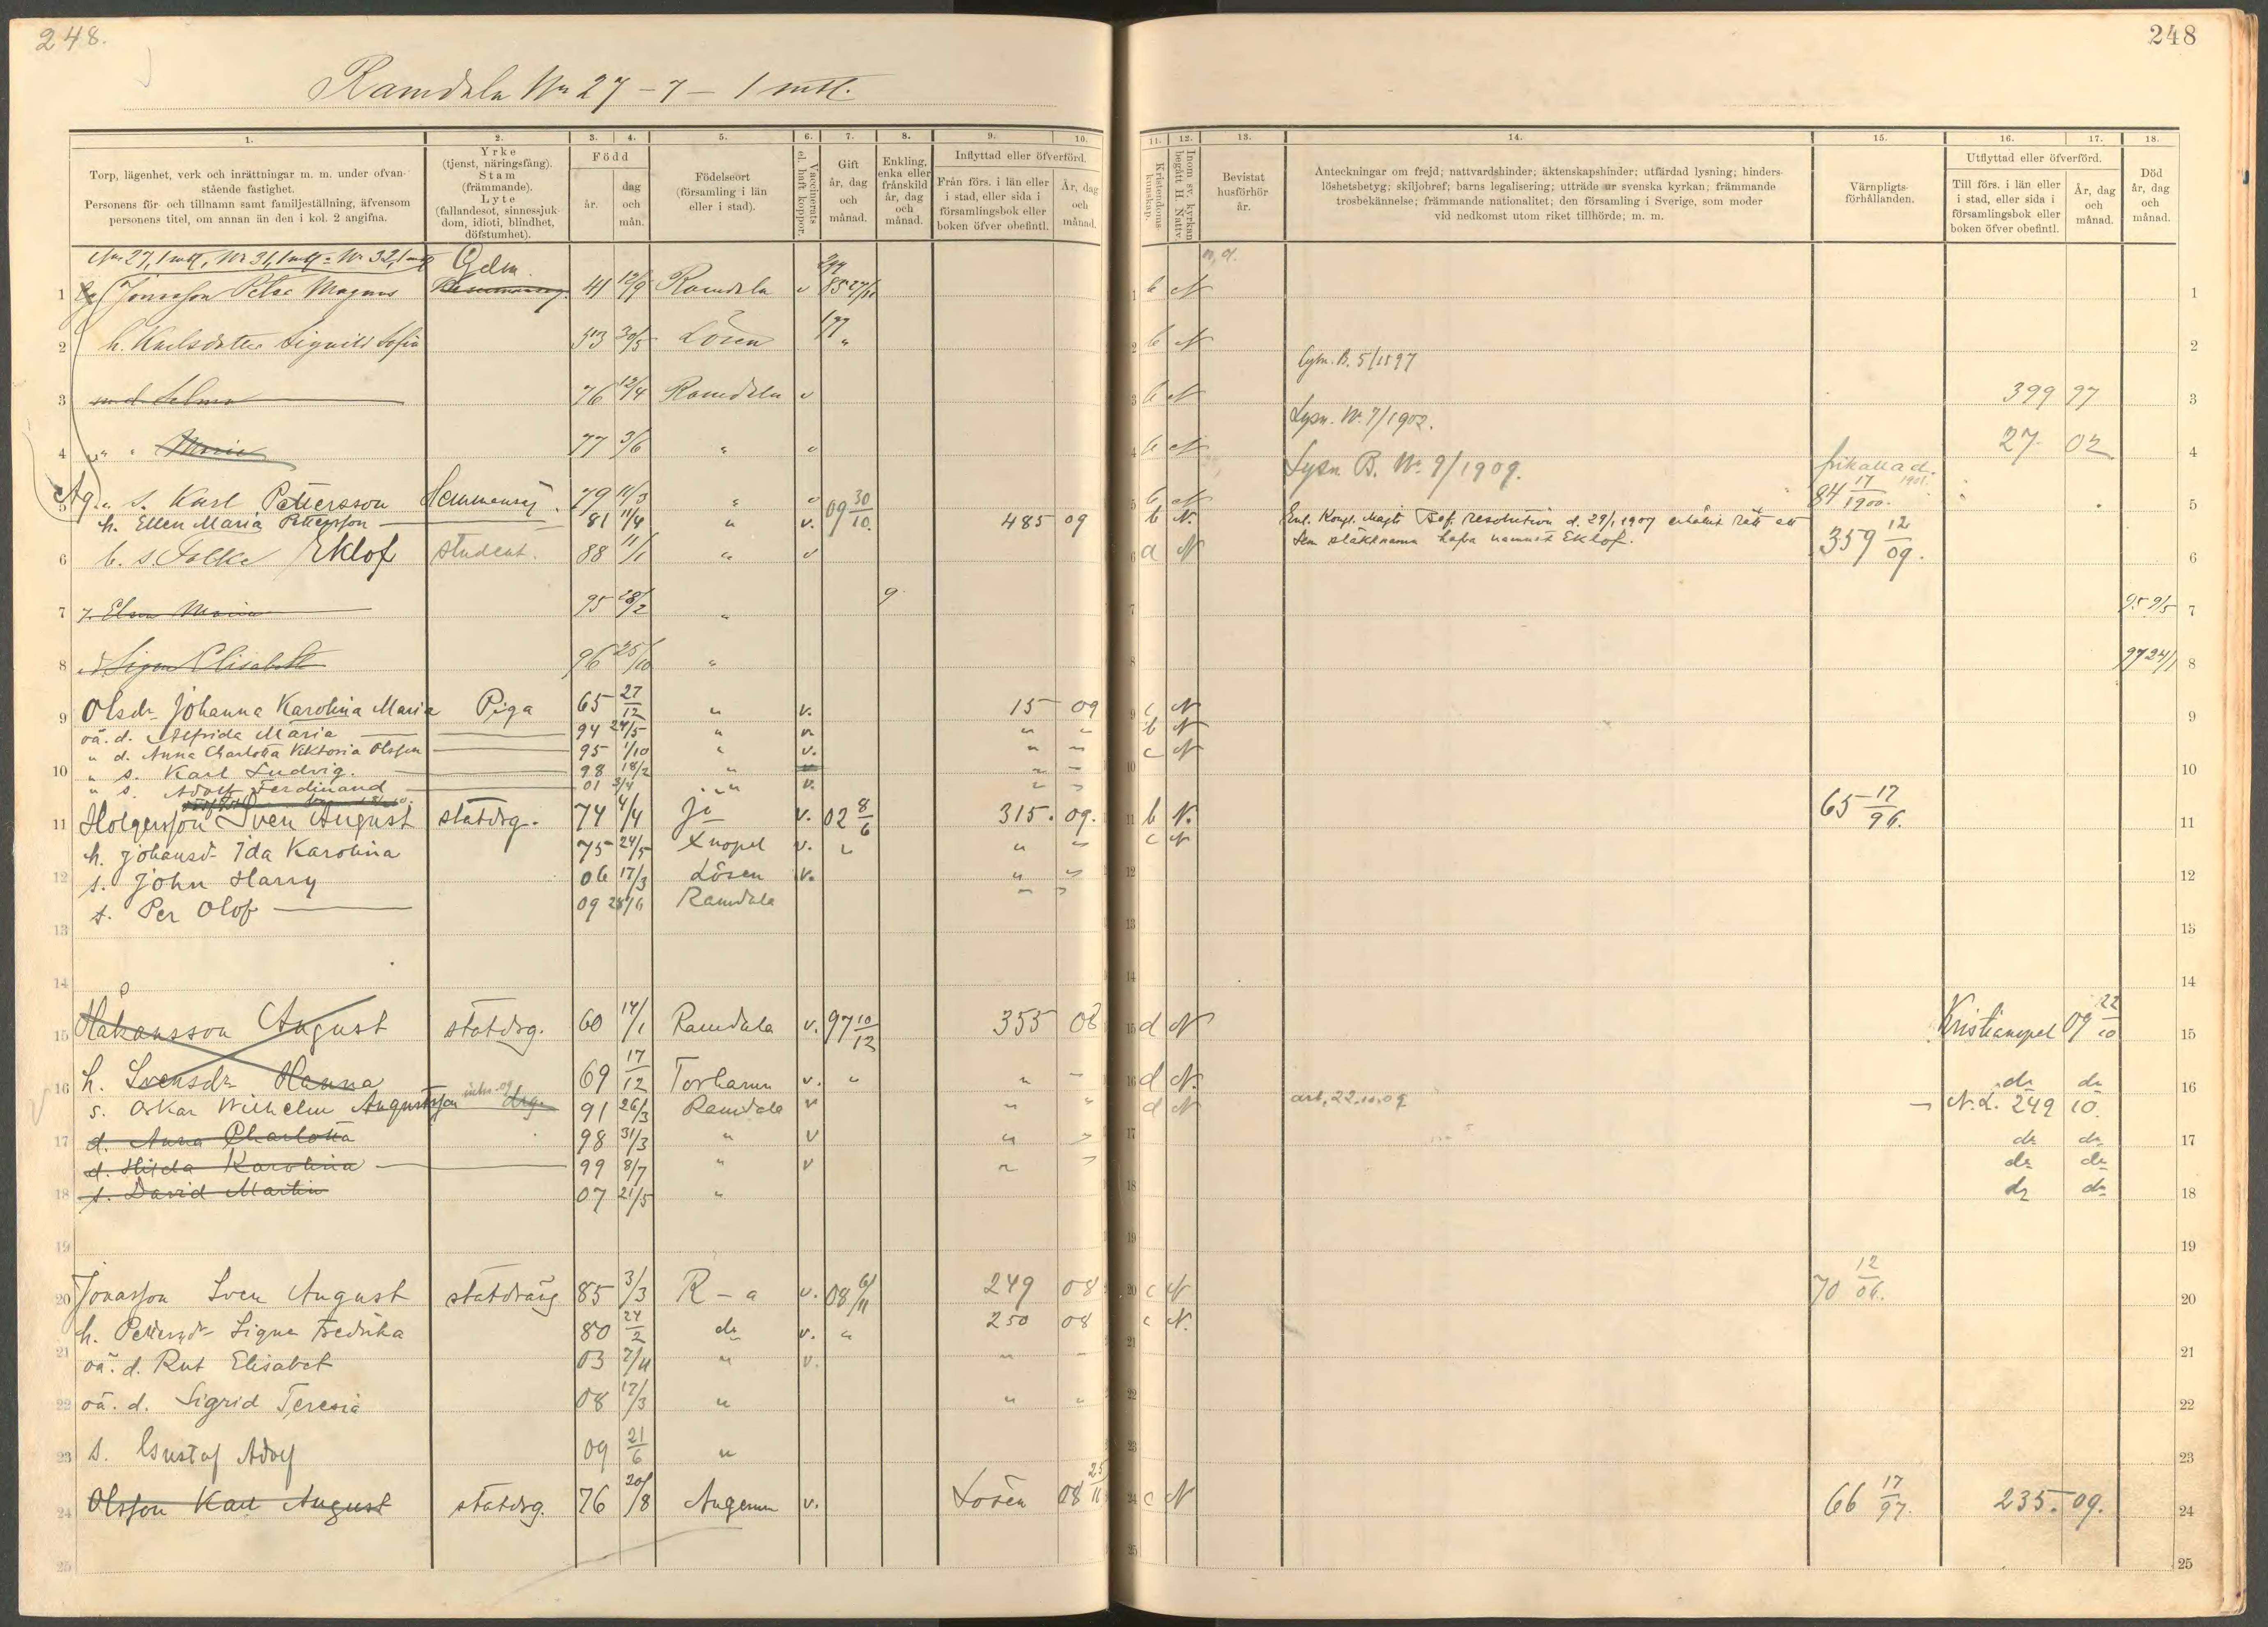 248.
248
Ramdala No 27 - 7 - 1 mtl.
1. 2. 3. 4. 5. 6. 7. 8. 9. 10. 11. 12. 13. 14. 15. 16. 17. 18.
Torp, lägenhet, verk och inrättningar m. m. under ofvanstående fastighet.
Personens för- och tillnamn samt familjeställning, äfvensom personens titel, om annan än den i kol. 2 angifna.
Yrke (tjenst, näringsfång). Stam (främmande). Lyte (fallandesot, sinnessjukdom, idioti, blindhet, döfstumhet).
Född
år.
dag och mån.
Födelseort (församling i län eller i stad).
Vaccinerats el. haft koppor.
Gift år, dag och månad.
Enkling, enka eller frånskild år, dag och månad.
Inflyttad eller öfverförd.
Från förs. i län eller i stad, eller sida i församlingsbok eller boken öfver obefintl.
År, dag och månad.
Kristendomskunskap.
Inom sv. kyrkan begått H. Nattv.
Bevistat husförhör år.
Anteckningar om frejd; nattvardshinder; äktenskapshinder; utfärdad lysning; hinderslöshetsbetyg; skiljobref; barns legalisering; utträde ur svenska kyrkan; främmande trosbekännelse; främmande nationalitet; den församling i Sverige, som moder vid nedkomst utom riket tillhörde; m. m.
Värnpligtsförhållanden.
Utflyttad eller öfverförd.
Till förs. i län eller i stad, eller sida i församlingsbok eller boken öfver obefintl.
År, dag och månad.
Död år, dag och månad.
No 27, 1 mtl, No 31, 1 mtl = No 32, 1 mtl
1 Jönsson Petter Magnus 41 12/9 Ramdala v 85 27/11 b N 1
2 h. Karlsdotter Signild Sofia 53 30/5 Lösen " b N 2
Lysn. B. 5/1897
3 m. d. Selma 76 12/4 Ramdala v b N 399 97 3
Lysn. No 7/1902.
4 " " Maria 77 3/6 " v b N 27 02 4
Lysn B. No 9/1909. frikallad. 1901.
5 Äg. " s. Karl Pettersson Hemmansäg. 79 11/3 " v 09 30/10. b N 84 17/1900. 5
h. Ellen Maria Pettersson 81 11/4 " v. 485 09 b N. Enl. Kongl. Majts Bef. resolution d. 29/1 1907 erhållit rätt att
6 b. s. Folke Eklöf student. 88 11/1 " v d N som släktnamn hafva namnet Eklöf. 359 12/09. 6
7 Elsa Maria 95 28/2 " 9 95 9/5 7
8 d Signe Elisabeth 96 25/10 " 97 24/1 8
9 Olsdr Johanna Karolina Maria Piga 65 27/12 " v. 15 09 c N 9
oä. d. Alfrida Maria 94 24/5 " v " " b N
" d. Anna Charlotta Viktoria Olsson 95 1/10 " v. " " c N
10 " s. Karl Ludvig. 98 18/2 " v " " 10
" s. Adolf Ferdinand 01 3/4 " v. " "
11 Holgersson Sven August statdrg. 74 4/4 Jä v. 02 8/6 315. 09. b N. 65 17/96. 11
h. Johansdr Ida Karolina 75 24/5 Xnopel v. " " " c N
12 s. John Harry 06 17/3 Lösen v. " " 12
s. Per Olof 09 28/6 Ramdala " "
13 13
14 14
15 Håkansson August statdrg. 60 14/1 Ramdala v. 97 10/12 355 08 d N Kristianopel 09 22/10 15
16 h. Svensdr Hanna 69 17/12 Torhamn v. " " " d N. do do 16
s. Oskar Wilhelm Augustsson drg. 91 26/3 Ramdala v " " d N arb. 22.10.09 N. L. 249 10.
17 d. Anna Charlotta 98 31/3 " v " " do do 17
d. Hilda Karolina 99 8/7 " v " " do do
18 s. David Martin 07 21/5 " do do 18
19 19
20 Jonasson Sven August statdräng 85 3/3 R - a v. 08 6/11 249 08 c N 70 12/06. 20
h. Pettersdr Signe Fredrika 80 24/2 do v. " 250 08 c N.
21 oä. d. Rut Elisabet 03 7/11 " v. " " 21
22 oä. d. Sigrid Teresia 08 17/3 " " " 22
23 s. Gustaf Adolf 09 21/6 " 23
24 Olsson Karl August statdrg. 76 20/8 Augerum v. Lösen 08 25/11 c N 66 17/97. 235. 09. 24
25 25